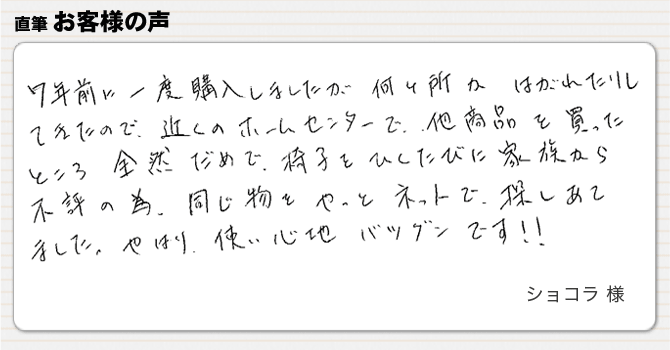 直筆 お客様の声
7年前に一度購入しましたが 何ヶ所か はがれたりし
てきたので、近くのホームセンターで、他商品を買った
ところ 全然 だめで、椅子をひくたびに家族から
不評の為、同じ物をやっとネットで、探しあて
ました。やはり、使い心地 バツグンです!!
ショコラ 様